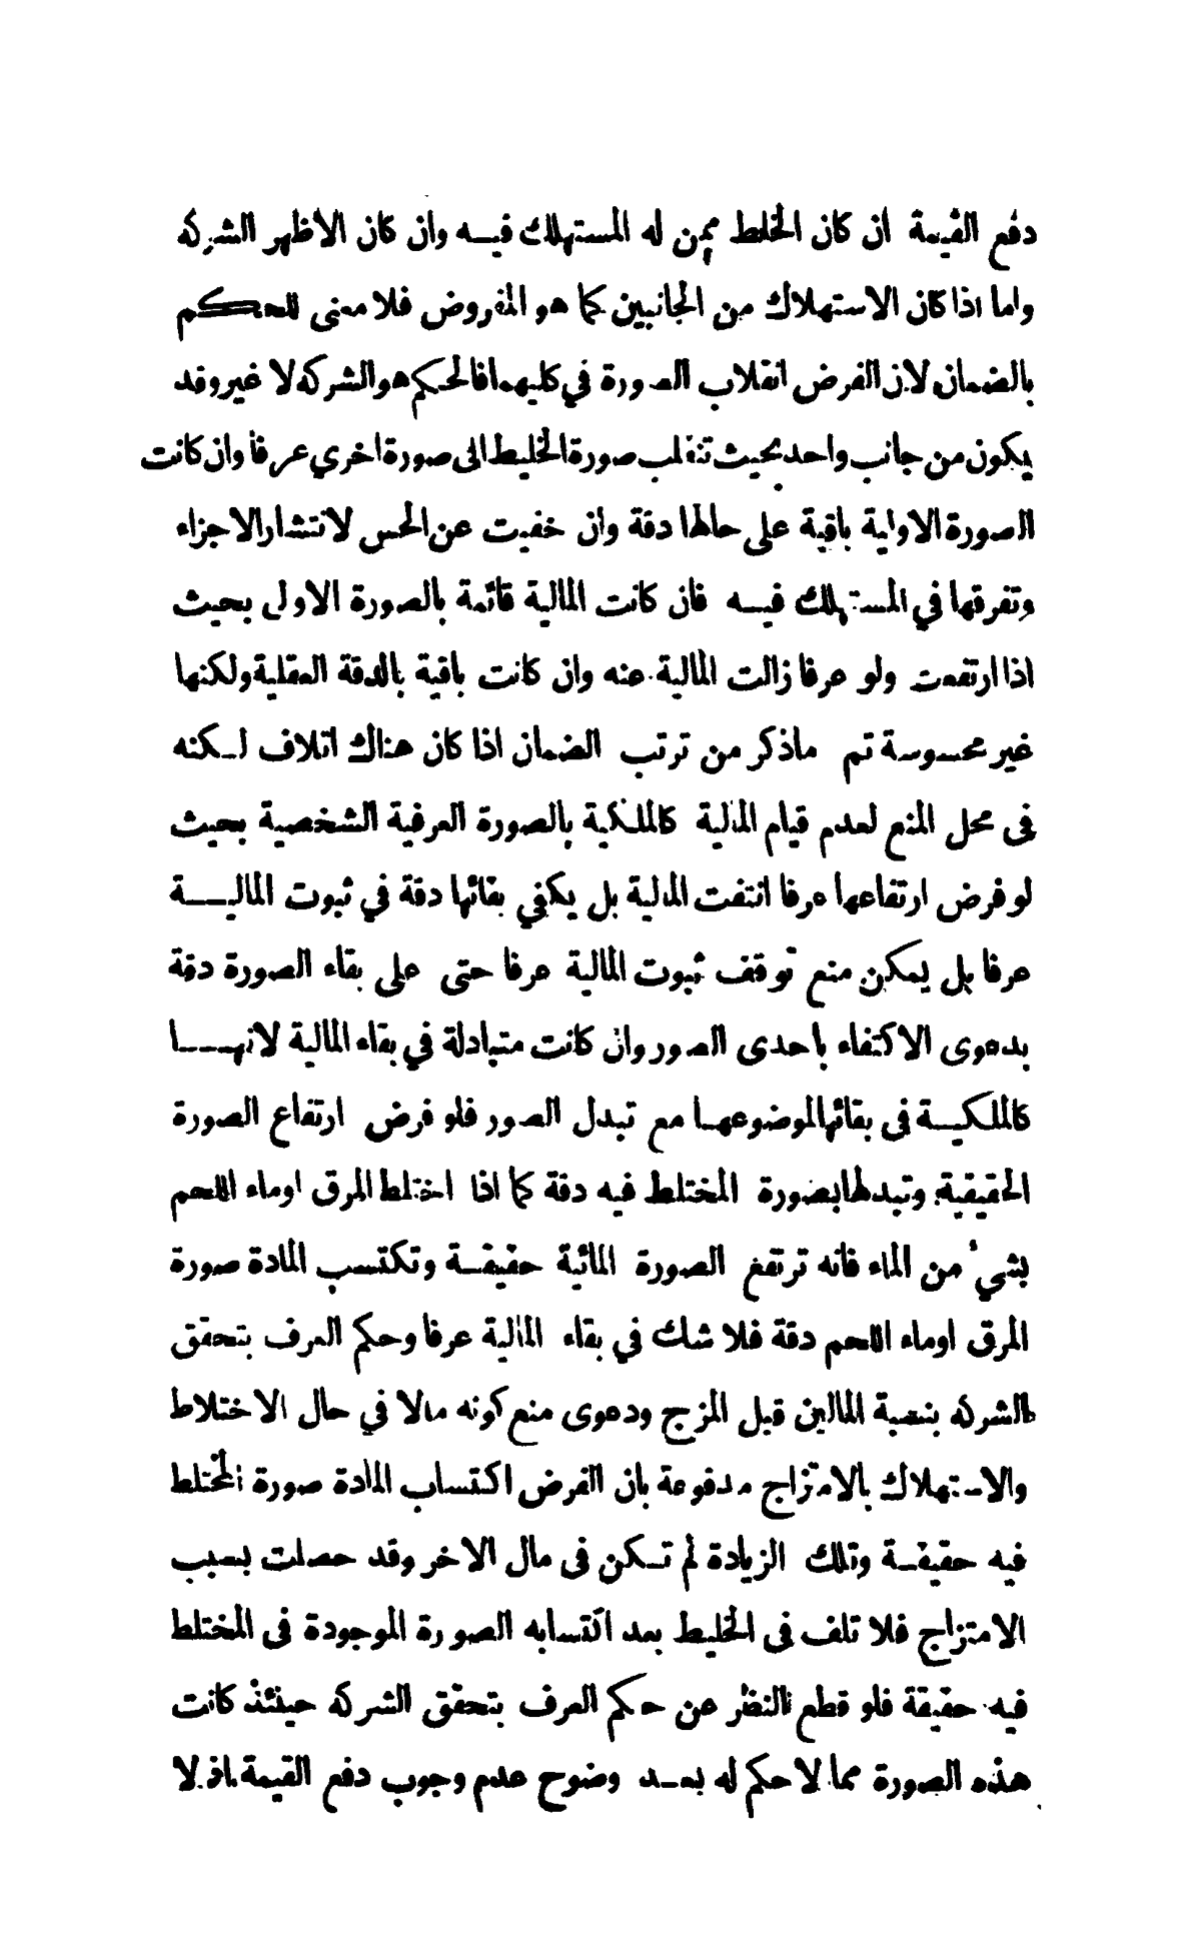 دفع القيمة ان كان الخلط ممن له المستهلك فيه وان كان الاظهر الشركة
واما اذا كان الاستهلاك من الجانبين كما هو المفروض فلا معنى للحكم
بالضمان لان الفرض انقلاب الصورة في كليهما فالحكم هو الشركة لا غير وقد
يكون من جانب واحد بحيث تنقلب صورة الخليط الى صورة اخري عرفا وان كانت
الصورة الاولية باقية على حالها دقة وان خفيت عن الحس لانتشار الاجزاء
وتفرقها في المستهلك فيه فان كانت المالية قائمة بالصورة الاولى بحيث
اذا ارتفعت ولو عرفا زالت المالية عنه وان كانت باقية بالدقة العقلية ولكنها
غير محسوسة تم ماذكر من ترتب الضمان اذا كان هناك اتلاف لكنه
فى محل المنع لعدم قيام المالية كالملكية بالصورة العرفية الشخصية بحيث
لو فرض ارتفاعها عرفا انتفت المالية بل يكفي بقائها دقة في ثبوت المالية
عرفا بل يمكن منع توقف ثبوت المالية عرفا حتى على بقاء الصورة دقة
بدعوى الاكتفاء باحدى الصور وان كانت متبادلة في بقاء المالية لانها
كالملكية فى بقائها لموضوعها مع تبدل الصور فلو فرض ارتفاع الصورة
الحقيقية وتبدلها بصورة المختلط فيه دقة كما اذا اختلط المرق اوماء اللحم
بشيء من الماء فانه ترتفع الصورة المائية حقيقة وتكتسب المادة صورة
المرق اوماء اللحم دقة فلا شك في بقاء المالية عرفا وحكم العرف بتحقق
الشركة بنسبة المالين قبل المزج ودعوى منع كونه مالا في حال الاختلاط
والاستهلاك بالامتزاج مدفوعة بان الفرض اكتساب المادة صورة المختلط
فيه حقيقة وتلك الزيادة لم تكن فى مال الاخر وقد حصلت بسبب
الامتزاج فلا تلف فى الخليط بعد اكتسابه الصورة الموجودة فى المختلط
فيه حقيقة فلو قطع النظر عن حكم العرف بتحقق الشركة حينئذ كانت
هذه الصورة مما لا حكم له بعد وضوح عدم وجوب دفع القيمة اذ لا